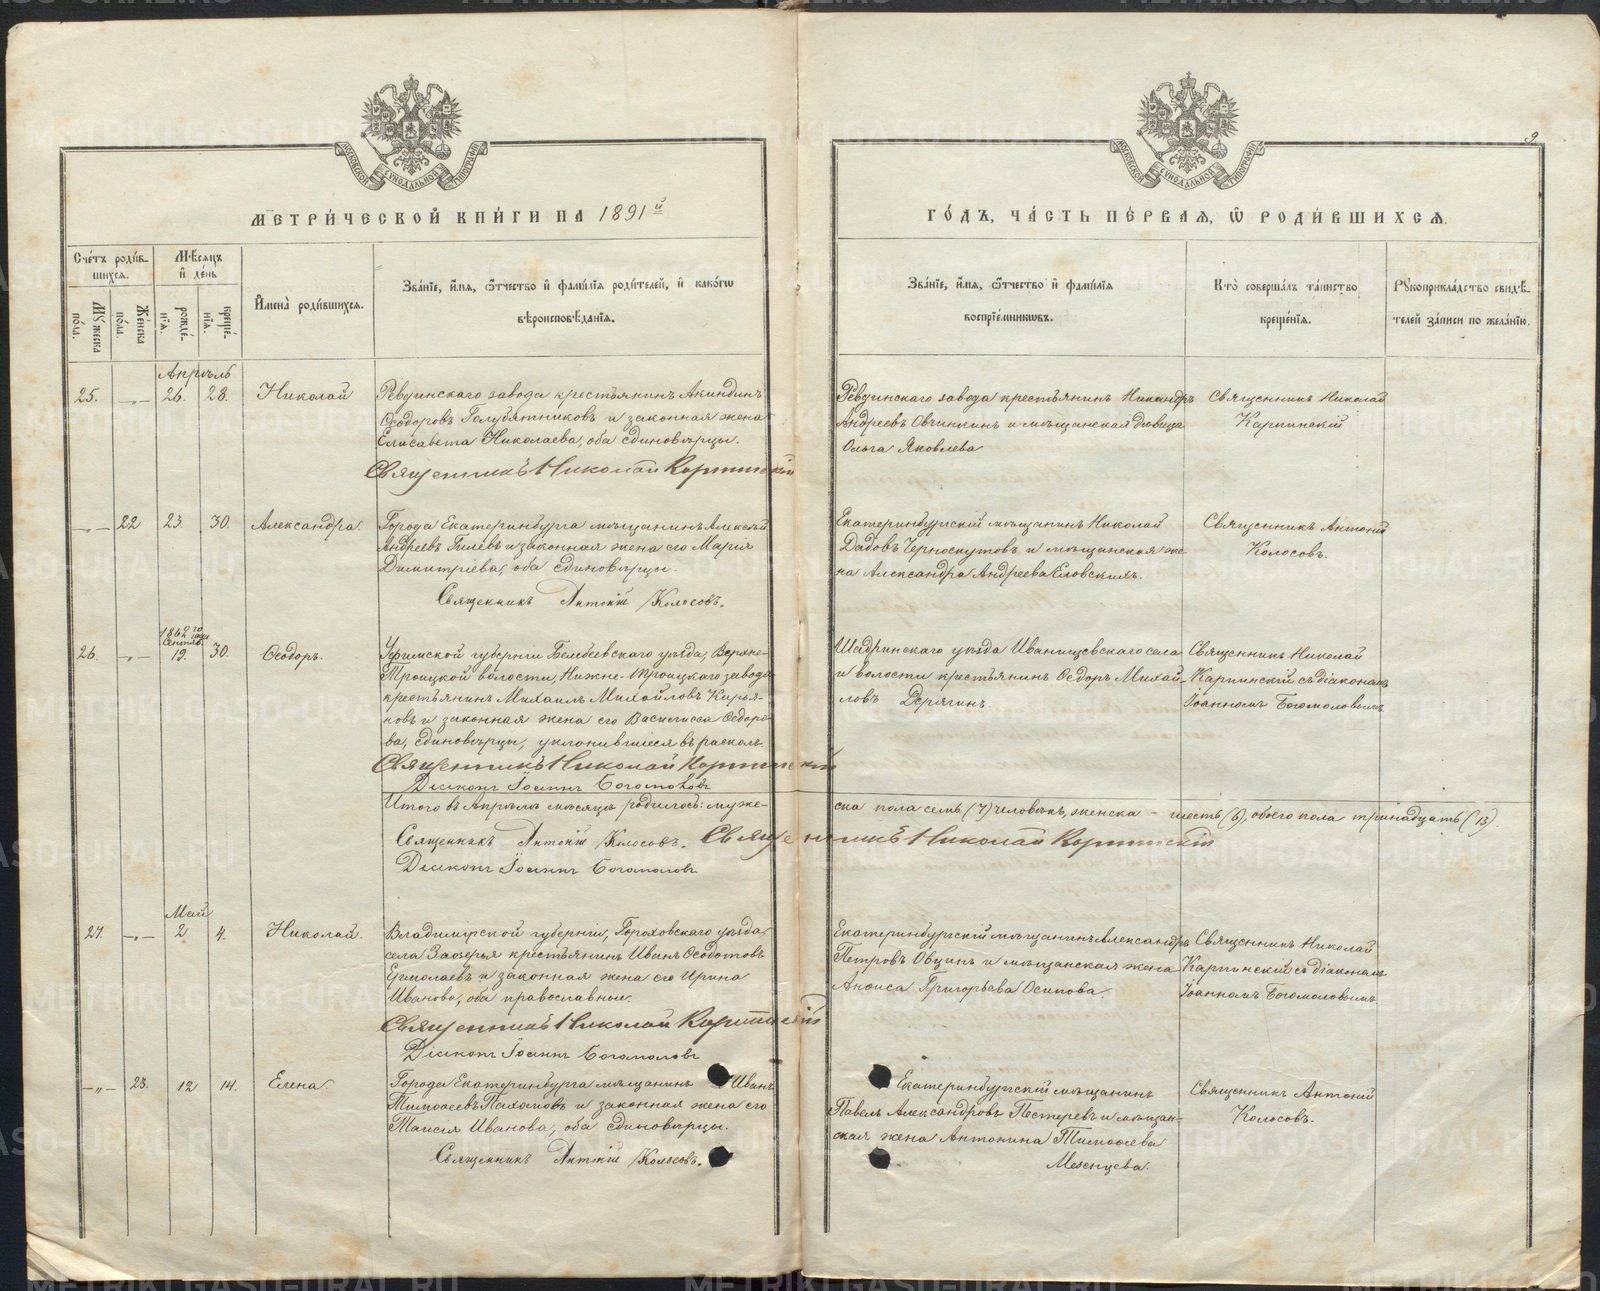 МЕТРИЧЕСКОЙ КНИГИ НА 1891й
Счетъ родив-
шихся.
Мѣсяцъ
и день
Мужеска
пола.
Женска
пола.
рожде-
нія.
креще-
нія.
Имена родившихся.
Званіе, имя, отчество и фамилія родителей, и какого
вѣроисповѣданія.
Апрѣль
25. — „ — 26. 28. Николай
Ревдинскаго завода крестьянинъ Акиндинъ
Ѳеодоровъ Голубятниковъ и законная жена
Елисавета Николаева, оба единовѣрцы.
Священникъ Николай Карпинскій
— „ — 22 23. 30. Александра.
Города Екатеринбурга мѣщанинъ Алексѣй
Андреевъ Гилевъ и законная жена его Марія
Димитріева, оба единовѣрцы.
Священникъ Антоній Колосовъ.
1862го года
Сентяб.
26. — „ — 19. 30. Ѳеодоръ.
Уфимской губерніи Белебеевскаго уѣзда, Верхне-
Троицкой волости, Нижне-Троицкаго завода
крестьянинъ Михаилъ Михайловъ Кирья-
новъ и законная жена его Василисса Ѳедоро-
ва, единовѣрцы, уклонившіеся въ расколъ.
Священникъ Николай Карпинскій
Діаконъ Іоаннъ Богомоловъ
Итого въ Апрѣлѣ мѣсяцѣ родилось: муже-
Священникъ Антоній Колосовъ. Священникъ Николай Карпинскій
Діаконъ Іоаннъ Богомоловъ
Май
27. — „ — 2 4. Николай.
Владимірской губерніи, Гороховскаго уѣзда,
села Заозерья крестьянинъ Иванъ Ѳеодотовъ
Ермолаевъ и законная жена его Ирина
Иванова, оба православные.
Священникъ Николай Карпинскій
Діаконъ Іоаннъ Богомоловъ
— „ — 23. 12 14. Елена.
Города Екатеринбурга мѣщанинъ Иванъ
Тимоѳеевъ Пахомовъ и законная жена его
Таисія Иванова, оба единовѣрцы.
Священникъ Антоній Колосовъ.
9
ГОДЪ, ЧАСТЬ ПЕРВАЯ, Ѡ РОДИВШИХСЯ.
Званіе, имя, отчество и фамилія
воспріемниковъ.
Кто совершалъ таинство
крещенія.
Рукоприкладство свидѣ-
телей записи по желанію.
Ревдинскаго завода крестьянинъ Никандръ
Андреевъ Овчинкинъ и мѣщанская дѣвица
Ольга Яковлева
Священникъ Николай
Карпинскій
Екатеринбургскій мѣщанинъ Николай
Дадовъ Черноскутовъ и мѣщанская же-
на Александра Андреева Еловскихъ.
Священникъ Антоній
Колосовъ.
Шадринскаго уѣзда Иванищевскаго села
и волости крестьянинъ Ѳедоръ Михай-
ловъ Дерягинъ.
Священникъ Николай
Карпинскій съ діаконамъ
Іоанномъ Богомоловымъ
ска пола семь (7) человѣкъ, женска — шесть (6), обоего пола тринадцать (13).
Екатеринбургскій мѣщанинъ Александръ
Петровъ Общинъ и мѣщанская жена
Анѳиса Григорьева Осипова.
Священникъ Николай
Карпинскій съ діаконамъ
Іоанномъ Богомоловымъ
Екатеринбургскій мѣщанинъ
Павелъ Александровъ Пестеревъ и мѣщан-
ская жена Антонина Тимоѳеева
Мезенцева.
Священникъ Антоній
Колосовъ.